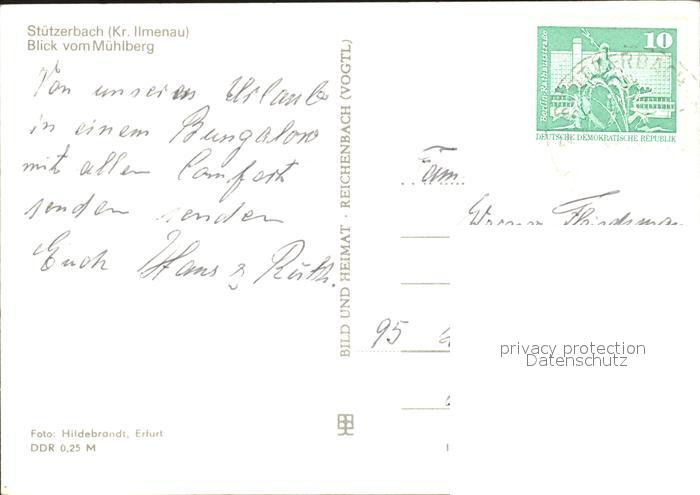 Stützerbach (Kr. Ilmenau)
Blick vom Mühlberg
Von unserem Urlaub
in einem Bungalow
mit allen Comfort
senden senden
Euch Hans & Ruth.
Foto: Hildebrandt, Erfurt
DDR 0,25 M
BILD UND HEIMAT · REICHENBACH (VOGTL)
10
Berlin-Rathausstraße
DEUTSCHE DEMOKRATISCHE REPUBLIK
Fam.
Werner
95
privacy protection
Datenschutz